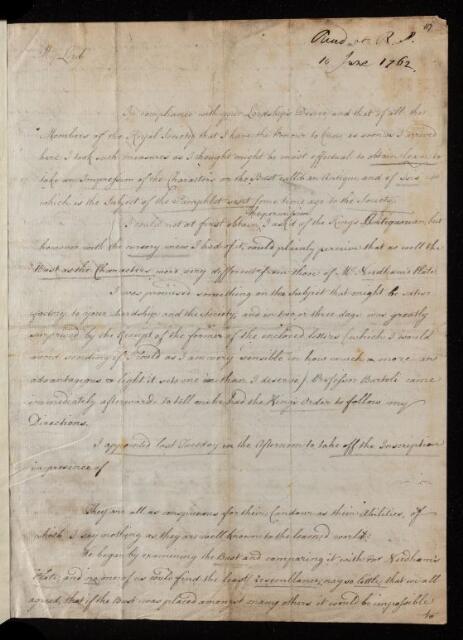 Read at R. S.
10 June 1762.
My Lord
In compliance with your Lordship's Desire, and that of all the
Members of the Royal Society that I have the Honour to know, as soon as I arrived
here I took such measures as I thought might be most effectual to obtain leave to
take an Impression of the Characters on the Bust call'd an Antique, and of Isis
which is the Subject of the Pamphlet sent some time ago to the Society.
I could not at first obtain the permission I ask'd of the King's Antiquarian, but
however with the cursory view I had of it, could plainly perceive that as well the
Bust as the Characters were very different from those of Mr Needham's Plate.
I was promised something on the Subject that might be satis-
factory to your Lordship and the Society, and in two or three days was greatly
surprised by the Receipt of the former of the enclosed letters (which I would
avoid sending if I could as I am very sensible in how much a more
advantageous a light it sets me in than I deserve) Professor Bartoli came
immediately afterwards to tell me he had the King's Order to follow my
Directions.
I appointed last Tuesday in the Afternoon to take off the Inscription
in presence of
They are all as conspicuous for their Candour as their Abilities, of
which I say nothing as they are well known to the learned world.
He began by examining the Bust and comparing it with Mr Needham's
Plate, and no one of us could find the least resemblance, nay so little, that we all
agreed, that if the Bust was placed amongst many others it would be impossible
to